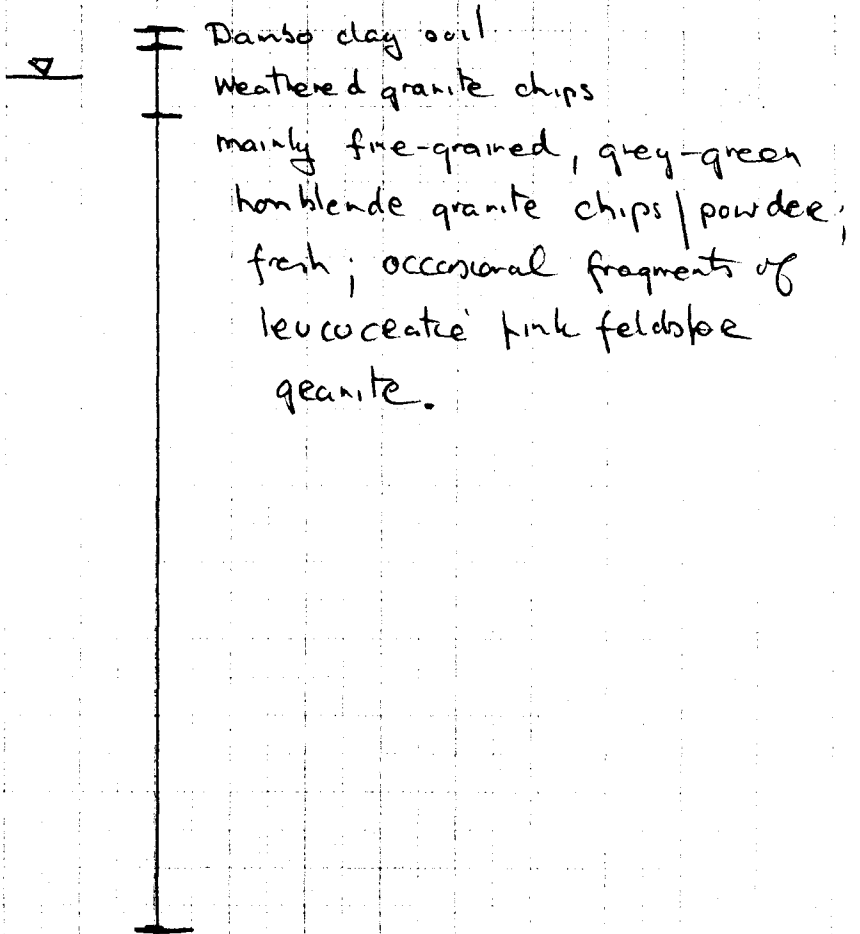 Dambo clay soil
Weathered granite chips
mainly fine-grained, grey-green
hornblende granite chips / powder;
fresh; occasional fragments of
leucocratic pink feldspar
granite.